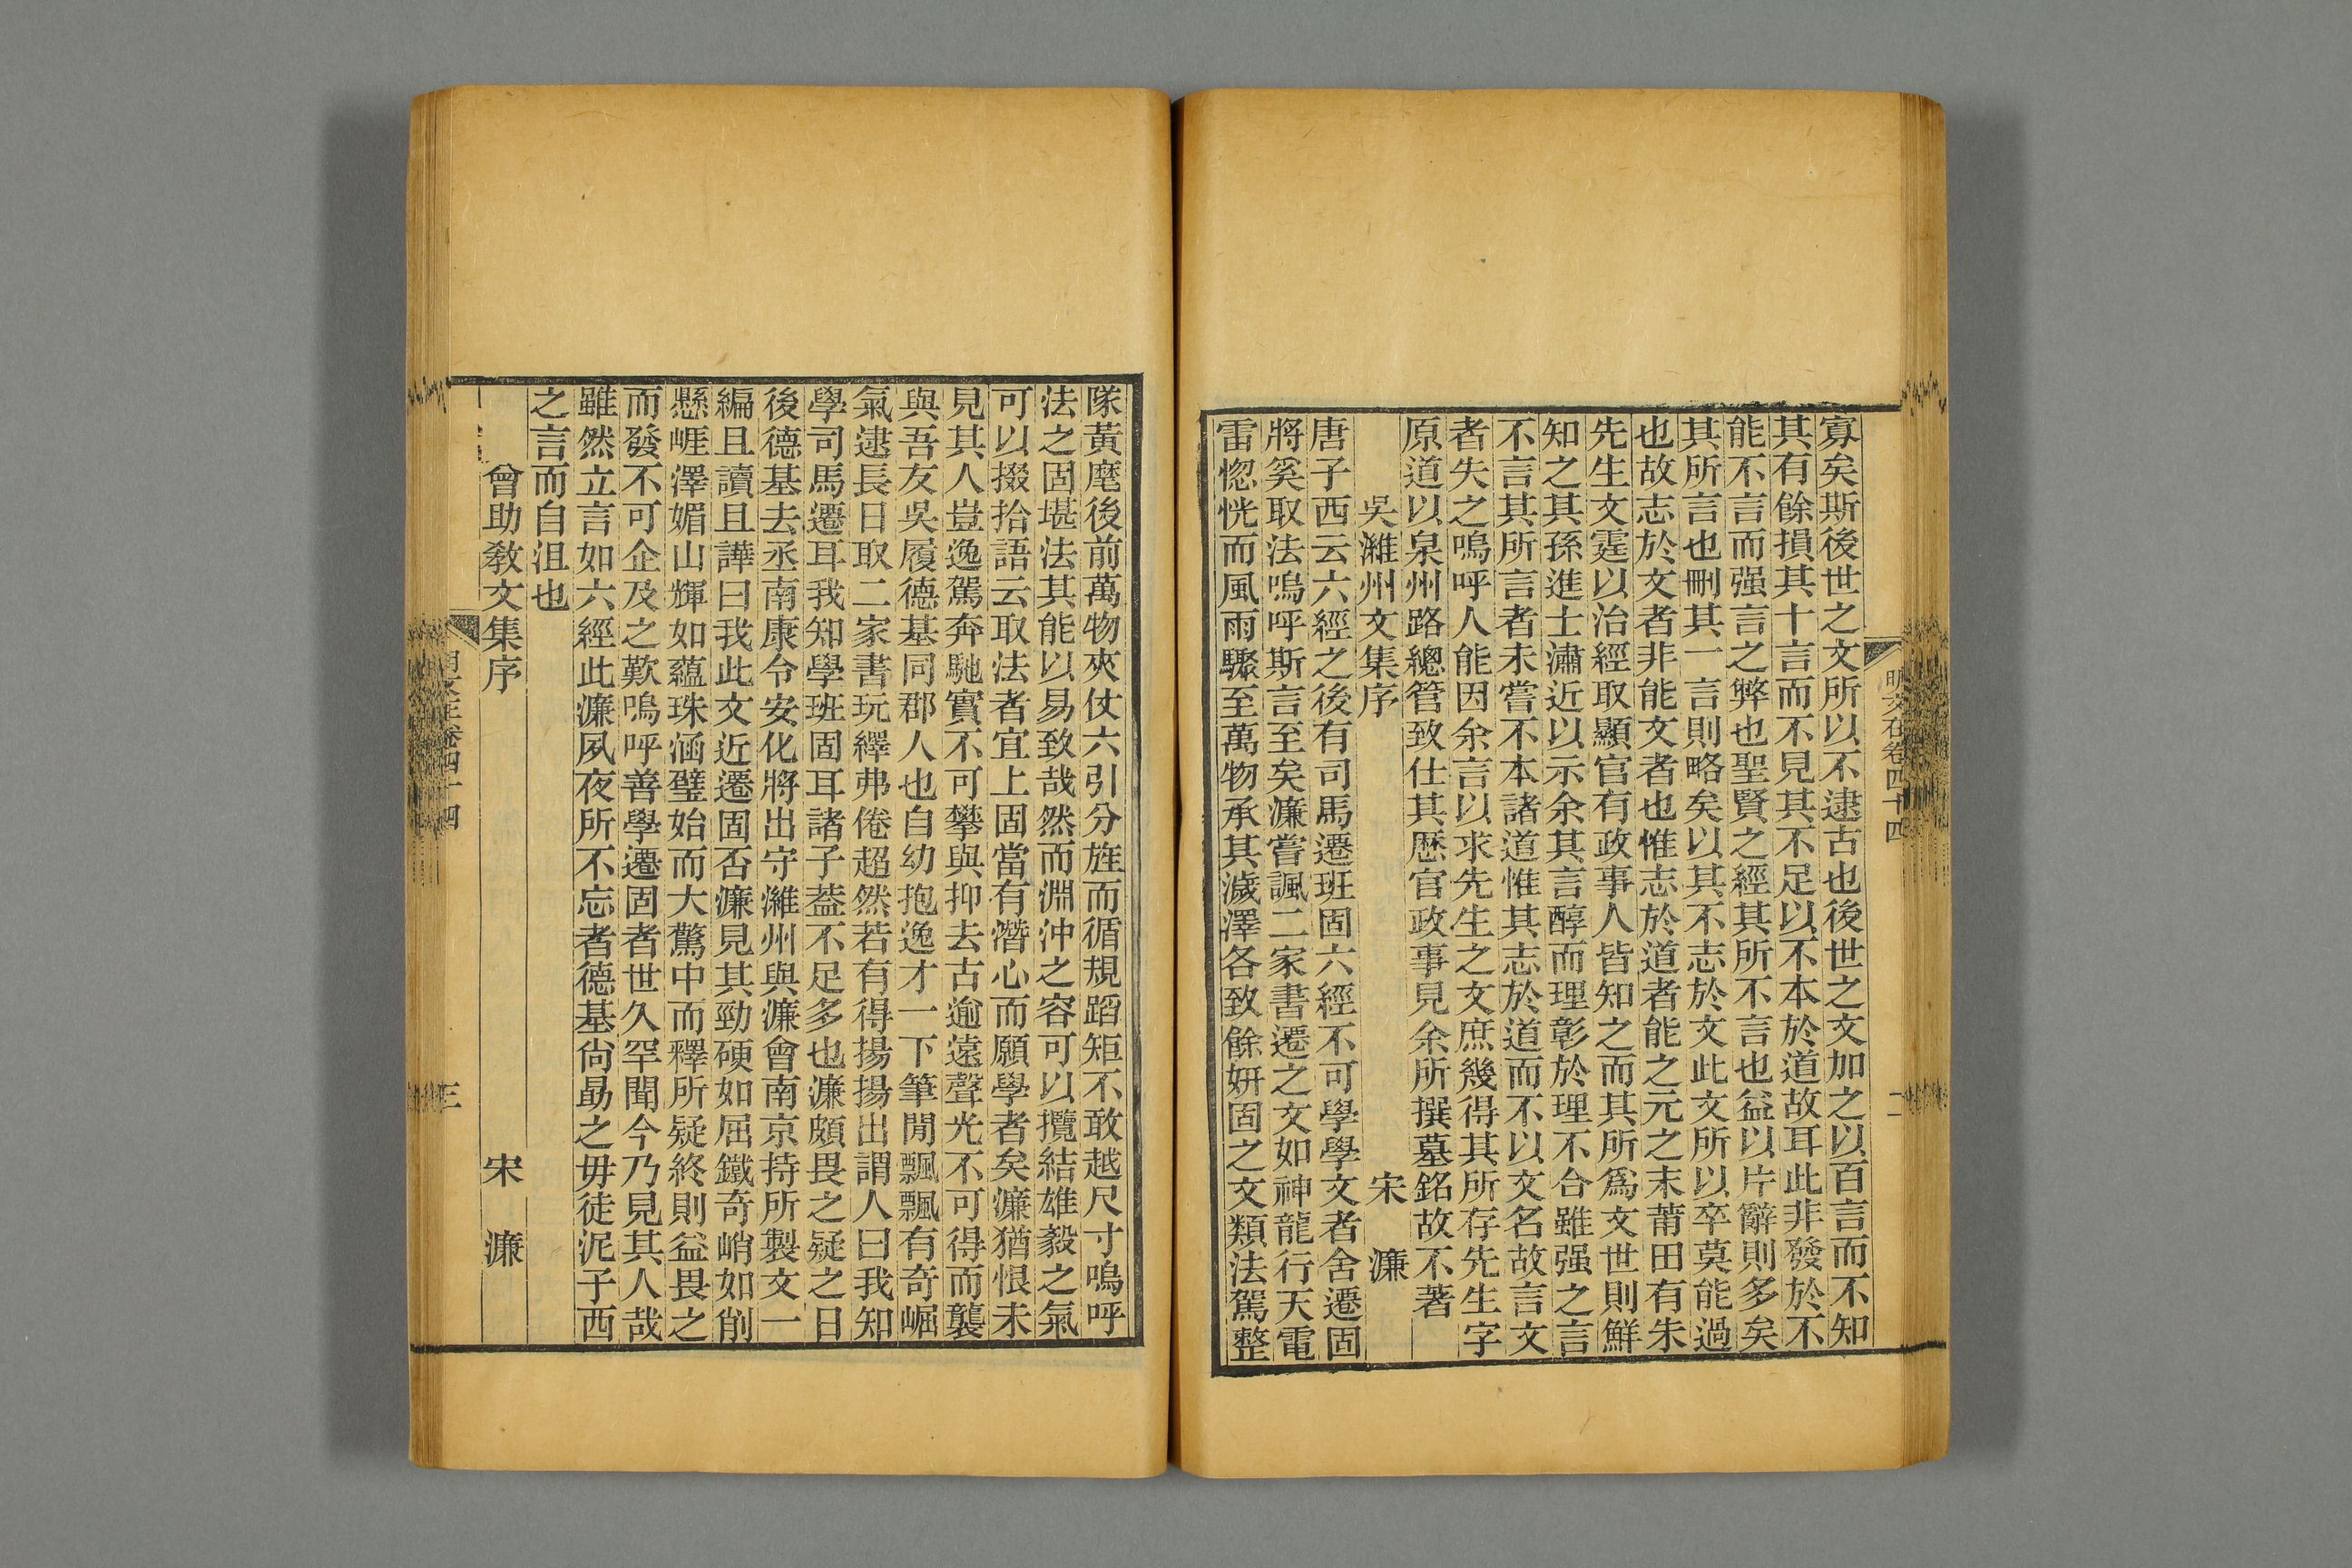 寡矣斯後世之文所以不逮古也後世之文加之以百言而不知
其有餘損其十言而不見其不足以不本於道故耳此非發於不
能不言而强言之弊也聖賢之經其所不言也益以片辭則多矣
其所言也刪其一言則略矣以其不志於文此文所以卒莫能過
也故志於文者非能文者也惟志於道者能之元之末莆田有朱
先生文霆以治經取顯官有政事人皆知之而其所爲文世則鮮
知之其孫進士潚近以示余其言醇而理彰於理不合雖强之言
不言其所言者未嘗不本諸道惟其志於道而不以文名故言文
者失之嗚呼人能因余言以求先生之文庶幾得其所存先生字
原道以泉州路總管致仕其歷官政事見余所撰墓銘故不著
吳濰州文集序 宋 濂
唐子西云六經之後有司馬遷班固六經不可學學文者舍遷固
將奚取法嗚呼斯言至矣濂嘗諷二家書遷之文如神龍行天電
雷惚恍而風雨驟至萬物承其濊澤各致餘妍固之文類法駕整
明文在卷四十四
二
隊黃麾後前萬物夾仗六引分旌而循規蹈矩不敢越尺寸嗚呼
法之固堪法其能以易致哉然而淵沖之容可以攬結雄毅之氣
可以掇拾語云取法者宜上固當有潛心而願學者矣濂猶恨未
見其人豈逸駕奔馳實不可攀與抑去古逾遠聲光不可得而襲
與吾友吳履德基同郡人也自幼抱逸才一下筆閒飄飄有奇崛
氣逮長日取二家書玩繹弗倦超然若有得揚揚出謂人曰我知
學司馬遷耳我知學班固耳諸子蓋不足多也濂頗畏之疑之日
後德基去丞南康令安化將出守濰州與濂會南京持所製文一
編且讀且譁曰我此文近遷固否濂見其勁硬如屈鐵奇峭如削
懸崕澤媚山輝如蘊珠涵璧始而大驚中而釋所疑終則益畏之
而發不可企及之歎嗚呼善學遷固者世久罕聞今乃見其人哉
雖然立言如六經此濂夙夜所不忘者德基尙勗之毋徒泥子西
之言而自沮也
曾助敎文集序 宋 濂
明文在卷四十四
三